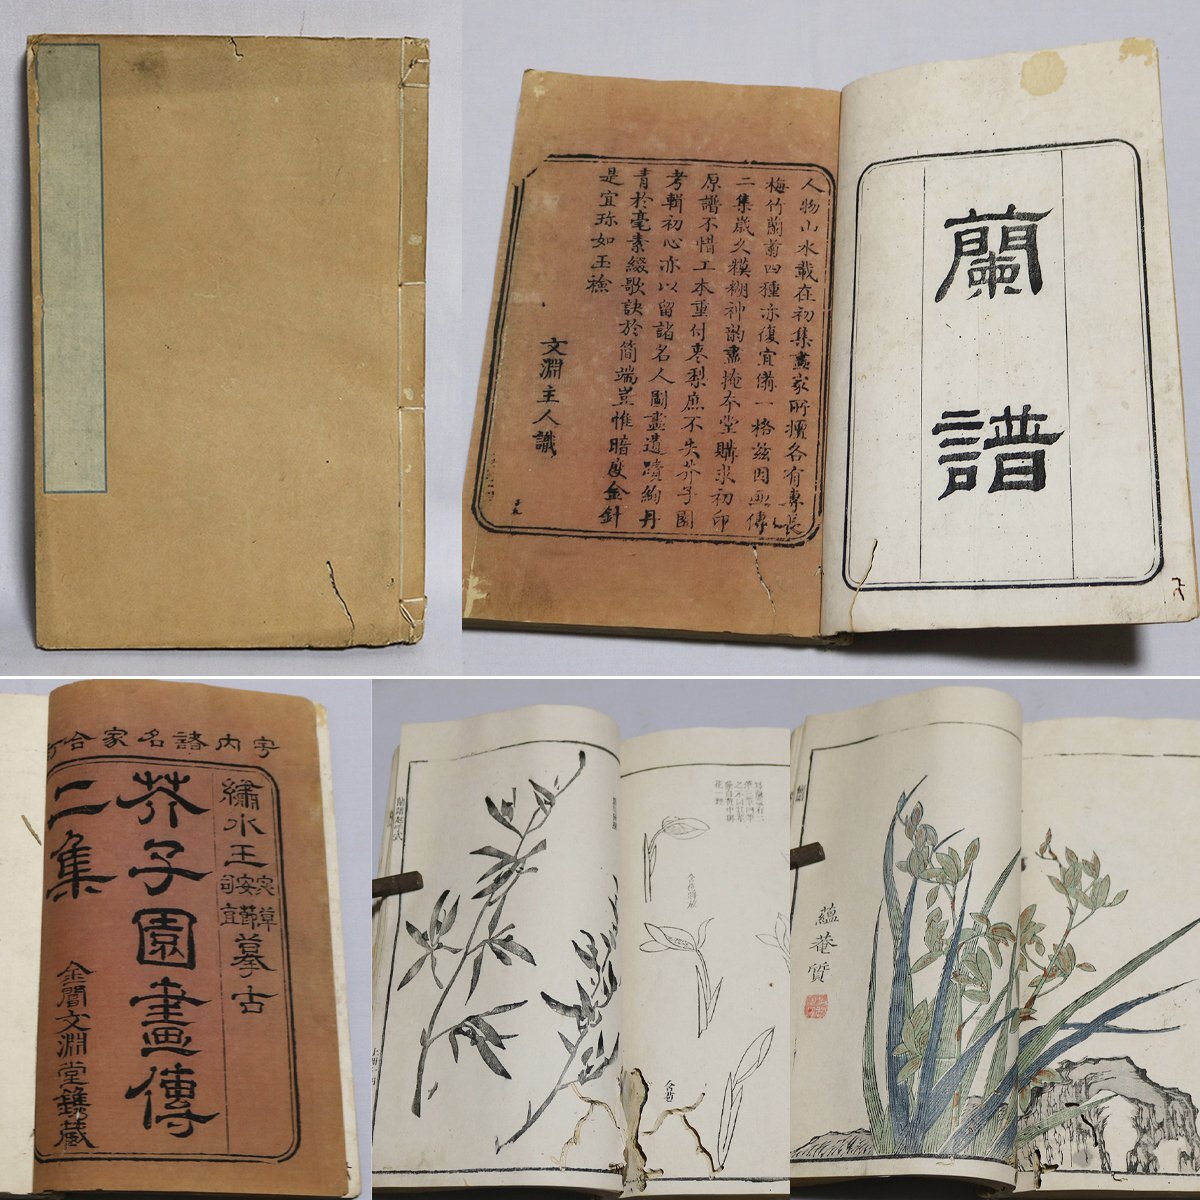 蘭譜
人物山水載在初集畫家所擅各有專長
梅竹蘭菊四種亦復宜備一格茲因畫傳
二集歲久糢糊神韵盡掩本堂購求初印
原譜不惜工本重付棗梨庶不失芥子園
考輯初心亦以留諸名人圖畫遺蹟絢丹
青於毫素綴歌訣於簡端豈惟暗度金針
是宜珍如玉襘
文淵主人識
宇内諸名家合訂
繡水王宓草安節司直摹古
芥子園畫傳
二集
金閶文淵堂鐫藏
蘭譜起手式
含苞
蘊菴質